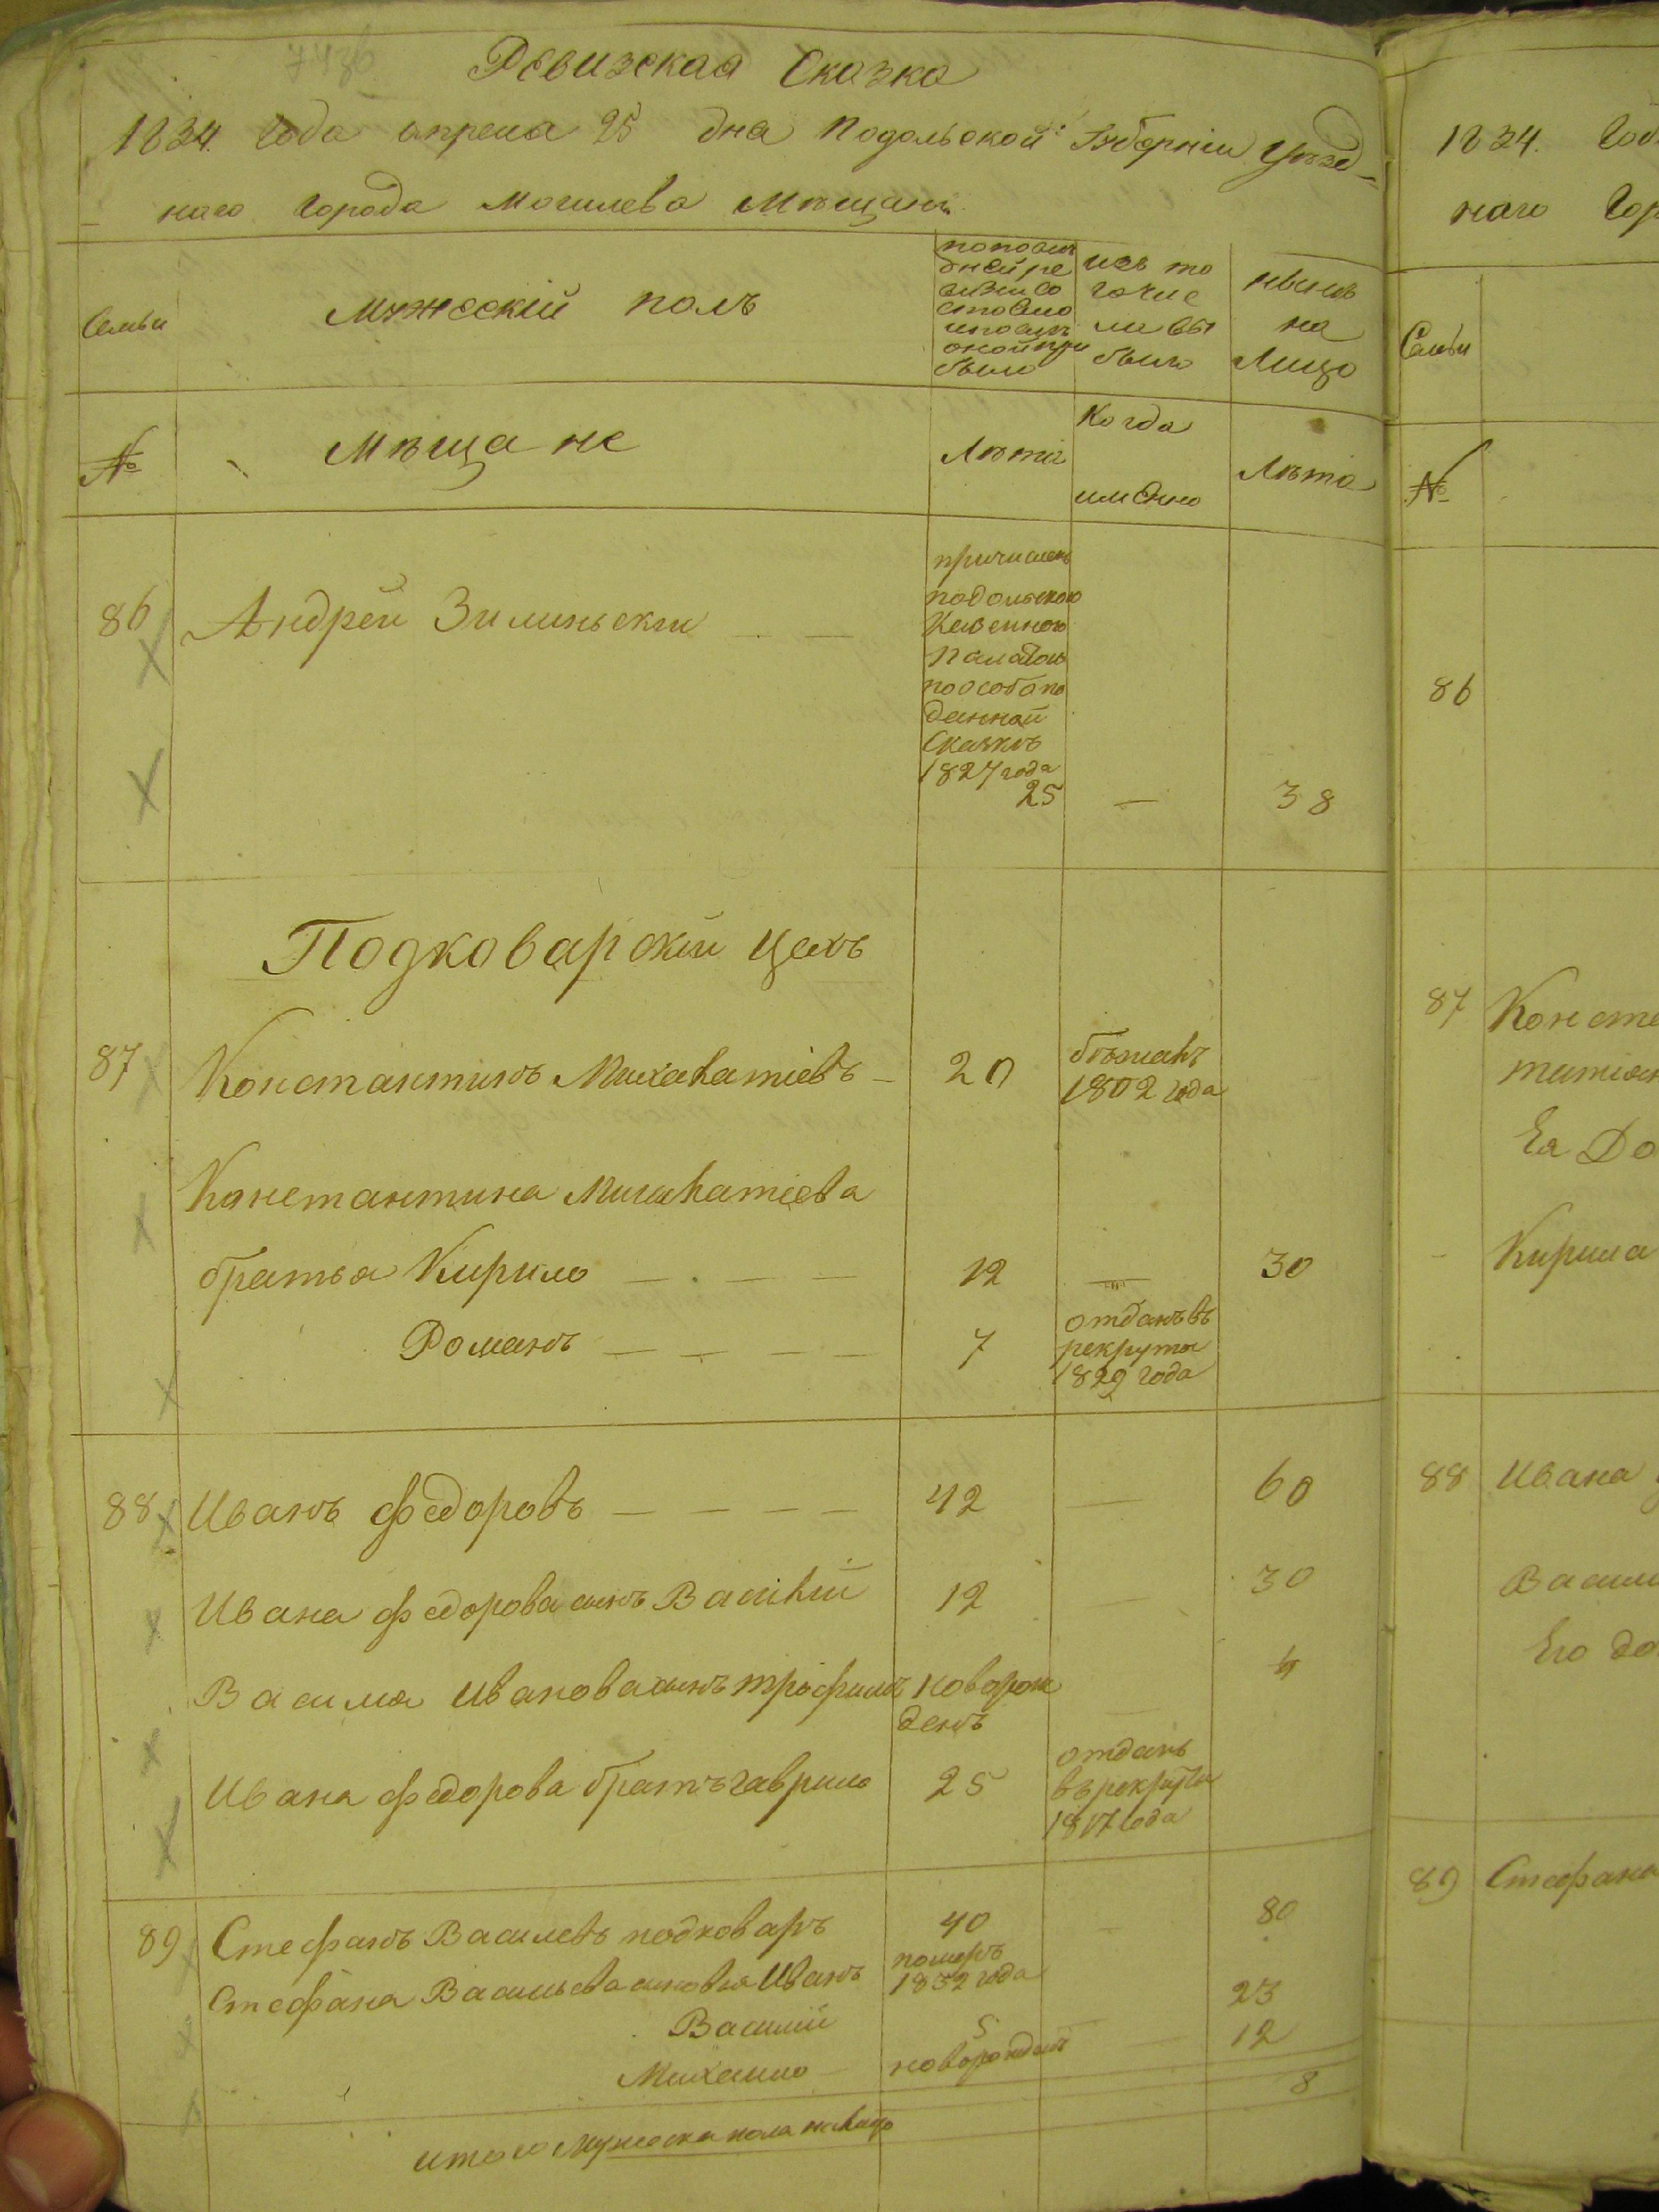 Ревизская Сказка
1834. года апреля 25 дня Подольской Губерніи Уѣзд-
наго Города Могилева Мѣщанъ
Семьи
Мужескій полъ
по послѣ
дней ре
визіи со
стояло
и послѣ
оной при
было
изъ то
го чис
ла вы
было
нынѣ
на
Лицо
№
Мѣщане
Лѣта
Когда
имѣнно
Лѣта
86
Андрей Зилиньскии
причисленъ
подольскою
Казенною
Палатою
по особо по
данной
Сказкѣ
1827 года
25
38
Подковарскіи Цехъ
87
Константинъ
20
бѣжалъ
1802 года
Константина
братья Кирило
12
30
Романъ
7
отданъ въ
рекруты
1829 года
88
Иванъ Федоровъ
42
60
Ивана Федорова сынъ Василій
12
30
Василія Иванова сынъ Трофимъ
новорож
денъ
4
Ивана Федорова братъ Гаврило
25
отданъ
въ рекруты
1817 года
89
Стефанъ Василевъ подковаръ
40
80
Стефана Васильева сыновья Иванъ
померъ
1832 года
23
Василій
5
12
Михаило
новорожденъ
8
итого Мужеска пола на лицо
1834. Год
наго Гор
Семьи
№
86
87
Конста
Ея До
Кирила
88
Ивана
Васили
Его до
89
Стефана